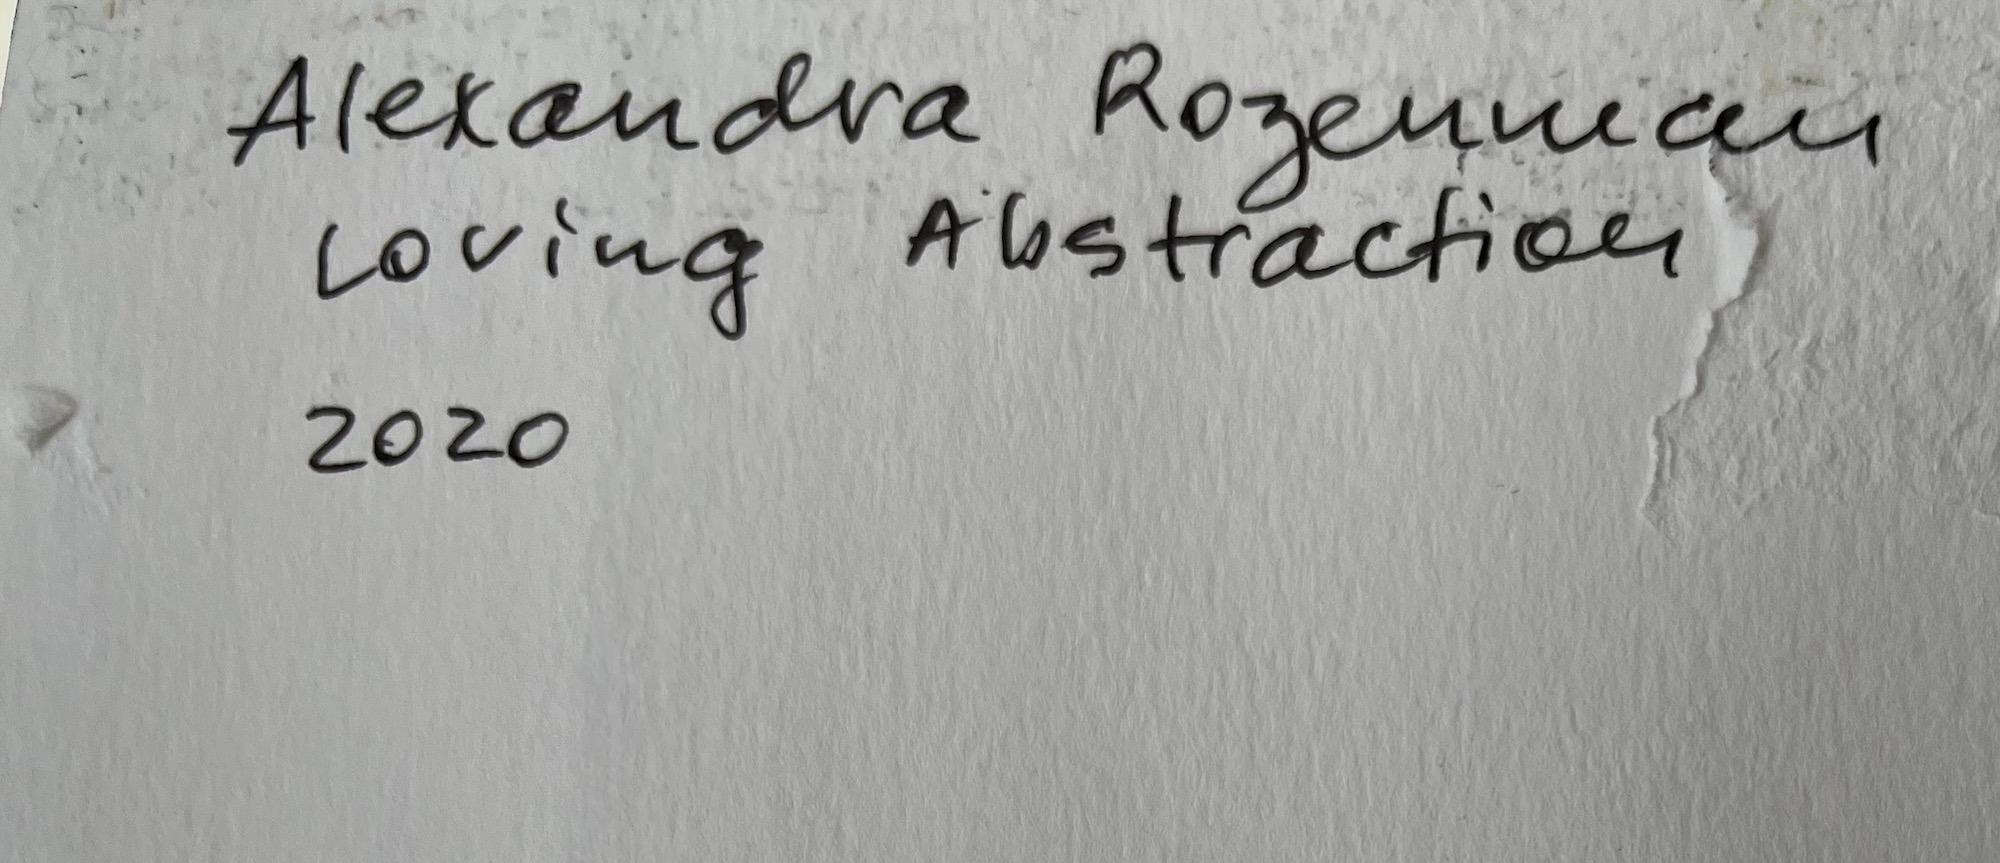 Alexandra Rozenman
Loving Abstraction
2020